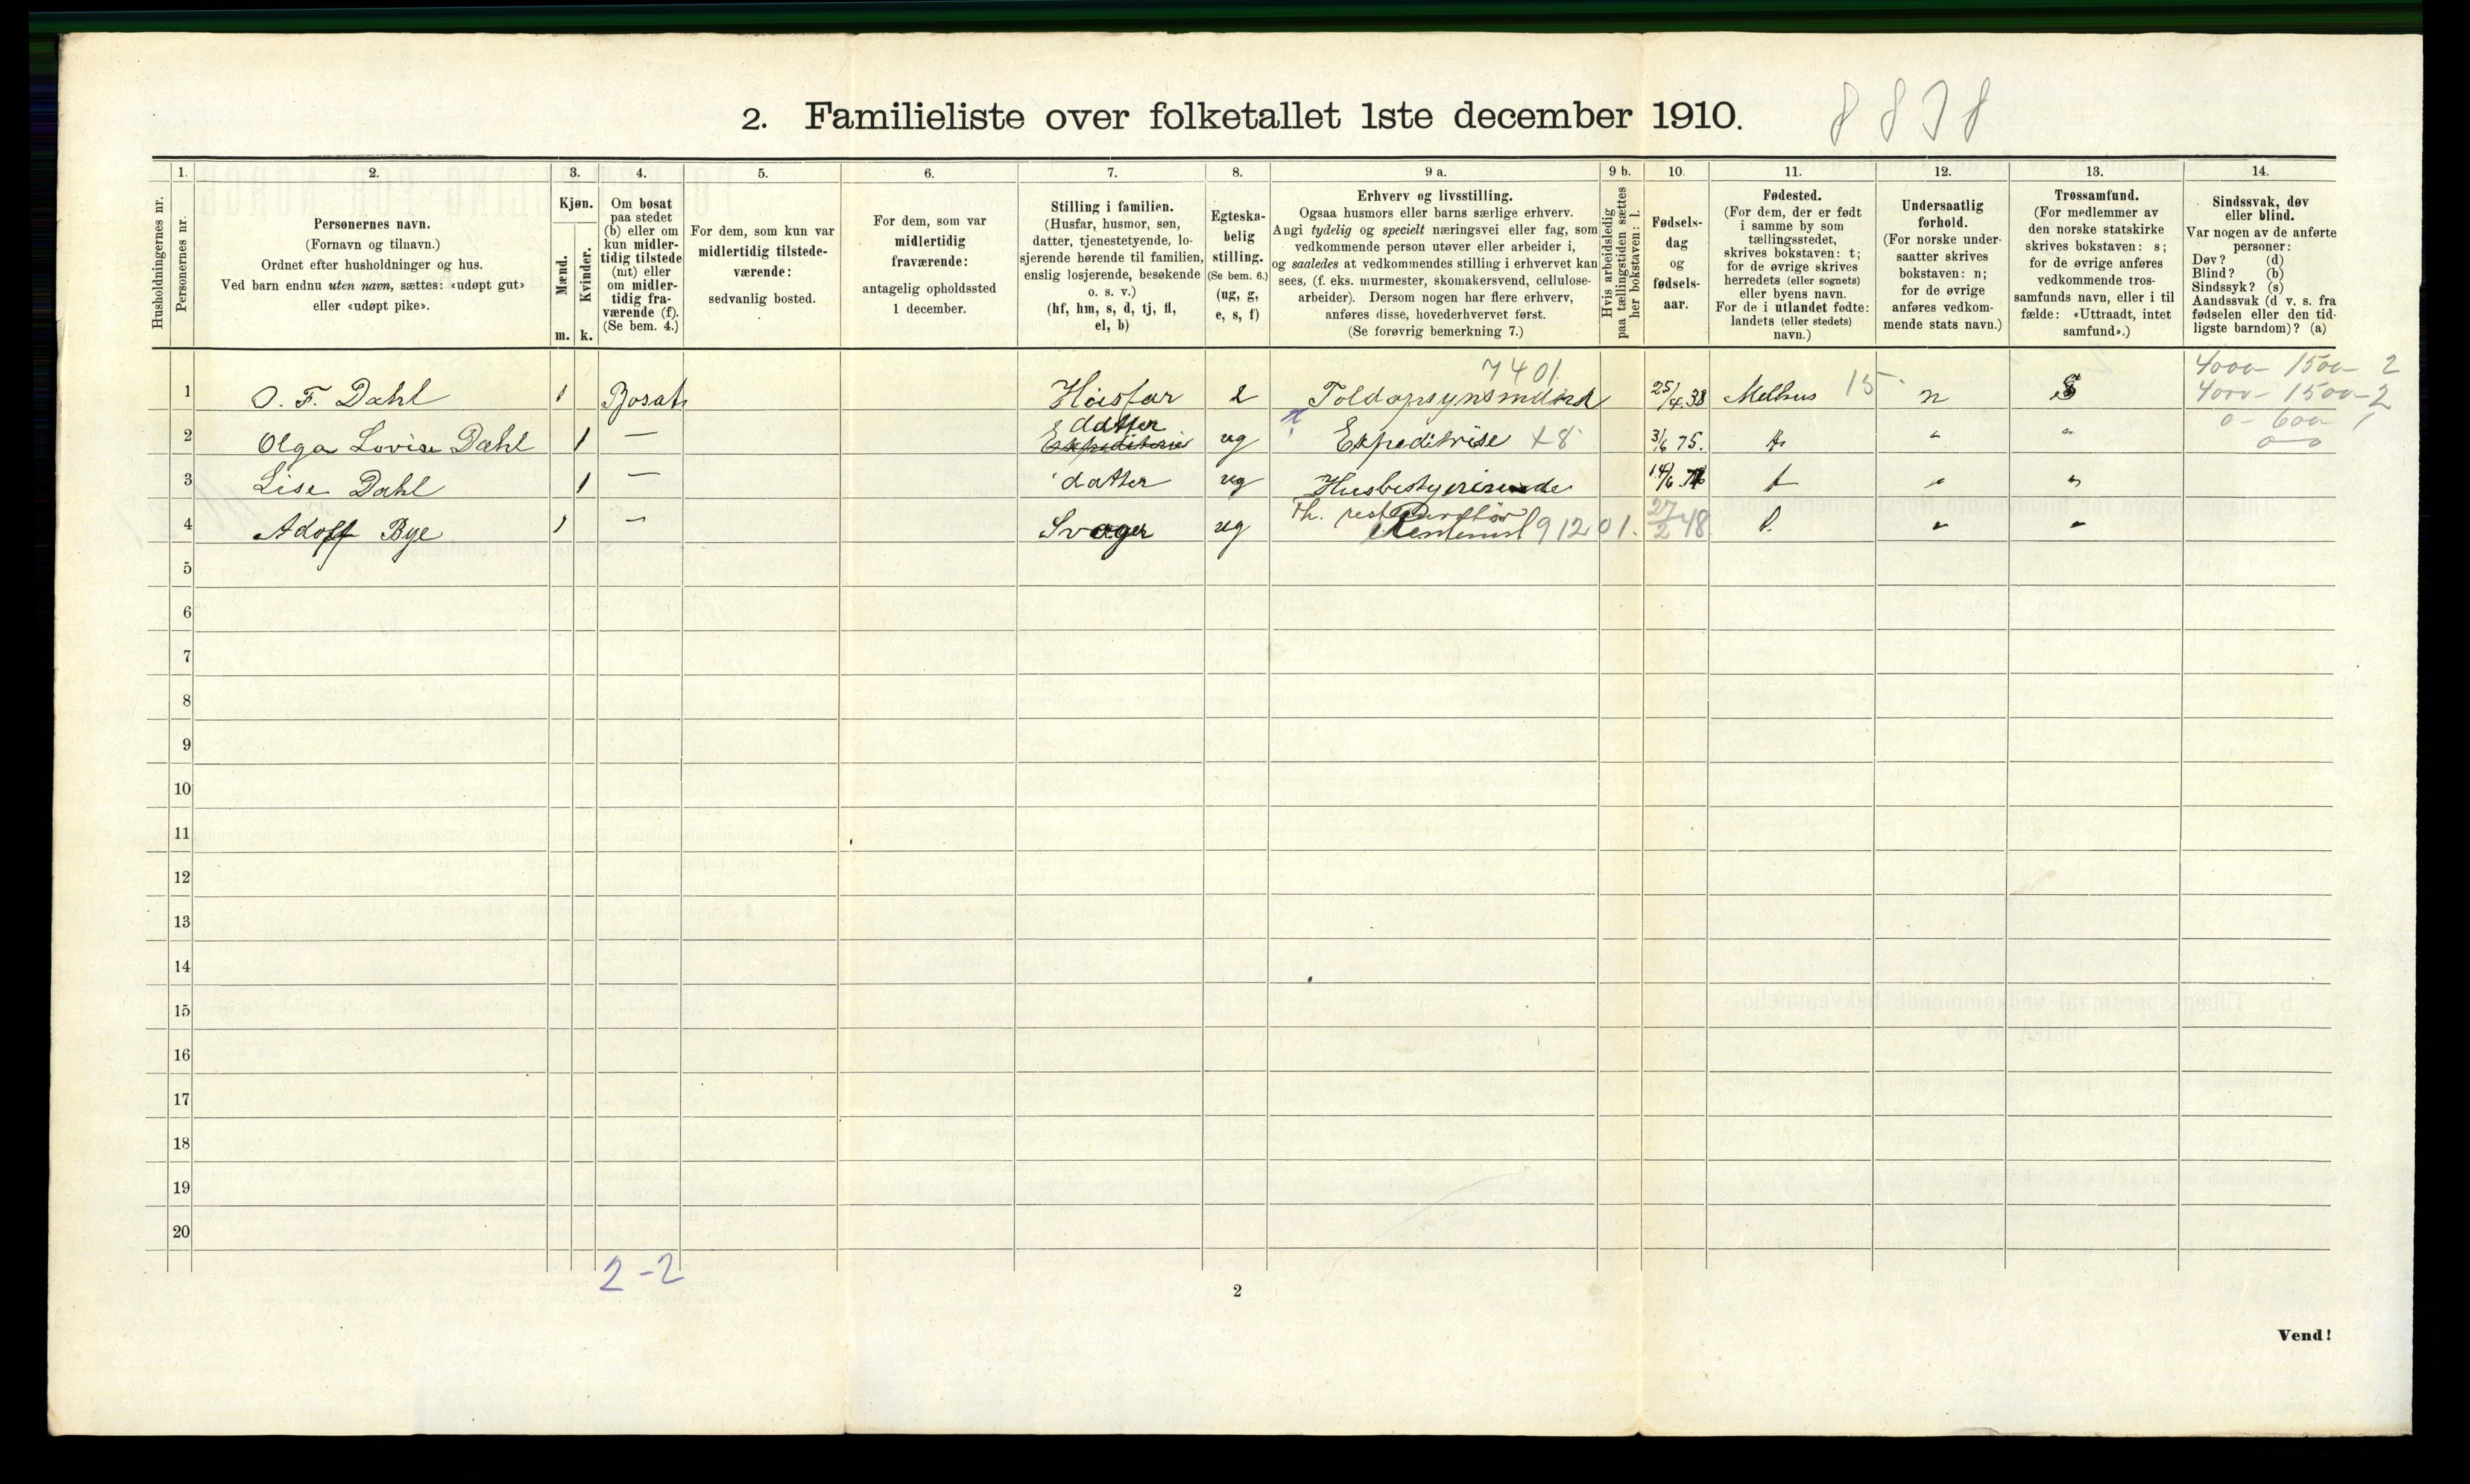 2. Familieliste over folketallet 1ste december 1910. 8838
Husholdningernes nr.
1.
Personernes nr.
2.
Personernes navn.
(Fornavn og tilnavn.)
Ordnet efter husholdninger og hus.
Ved barn endnu uten navn, sættes: «udøpt gut»
eller «udøpt pike».
3.
Kjøn.
Mænd.
m.
Kvinder.
k.
4.
Om bosat
paa stedet
(b) eller om
kun midler-
tidig tilstede
(mt) eller
om midler-
tidig fra-
værende (f).
(Se bem. 4.)
5.
For dem, som kun var
midlertidig tilstede-
værende:
sedvanlig bosted.
6.
For dem, som var
midlertidig
fraværende:
antagelig opholdssted
1 december.
7.
Stilling i familien.
(Husfar, husmor, søn,
datter, tjenestetyende, lo-
sjerende hørende til familien,
enslig losjerende, besøkende
o. s. v.)
(hf, hm, s, d, tj, fl,
el, b)
8.
Egteska-
belig
stilling.
(Se bem. 6.)
(ug, g,
e, s, f)
9 a.
Erhverv og livsstilling.
Ogsaa husmors eller barns særlige erhverv.
Angi tydelig og specielt næringsvei eller fag, som
vedkommende person utøver eller arbeider i,
og saaledes at vedkommendes stilling i erhvervet kan
sees, (f. eks. murmester, skomakersvend, cellulose-
arbeider). Dersom nogen har flere erhverv,
anføres disse, hovederhvervet først.
(Se forøvrig bemerkning 7.)
9 b.
Hvis arbeidsledig
paa tællingstiden sættes
her bokstaven: l.
10.
Fødsels-
dag
og
fødsels-
aar.
11.
Fødested.
(For dem, der er født
i samme by som
tællingsstedet,
skrives bokstaven: t;
for de øvrige skrives
herredets (eller sognets)
eller byens navn.
For de i utlandet fødte:
landets (eller stedets)
navn.)
12.
Undersaatlig
forhold.
(For norske under-
saatter skrives
bokstaven: n;
for de øvrige
anføres vedkom-
mende stats navn.)
13.
Trossamfund.
(For medlemmer av
den norske statskirke
skrives bokstaven: s;
for de øvrige anføres
vedkommende tros-
samfunds navn, eller i til
fælde: «Uttraadt, intet
samfund».)
14.
Sindssvak, døv
eller blind.
Var nogen av de anførte
personer:
Døv? (d)
Blind? (b)
Sindssyk? (s)
Aandssvak (d v. s. fra
fødselen eller den tid-
ligste barndom)? (a)
7401. 4000 1500 2
1 O. F. Dahl 1 Bosat Husfar Toldopsynsmand 25/4.38 Melhus 15 n S 4000 - 1500 - 2
datter 0 - 600 1
2 Olga Lovise Dahl 1 — ug Expeditrise +8 3/6 75. t " " 0 - 0
3 Lise Dahl 1 — datter ug Husbestyrerinde 14/6 t " "
Th.
4 Adolf Bye 1 — Svager ug Rentenist 91201. 27/2 48 " "
5
6
7
8
9
10
11
12
13
14
15
16
17
18
19
20
2-2
2
Vend!